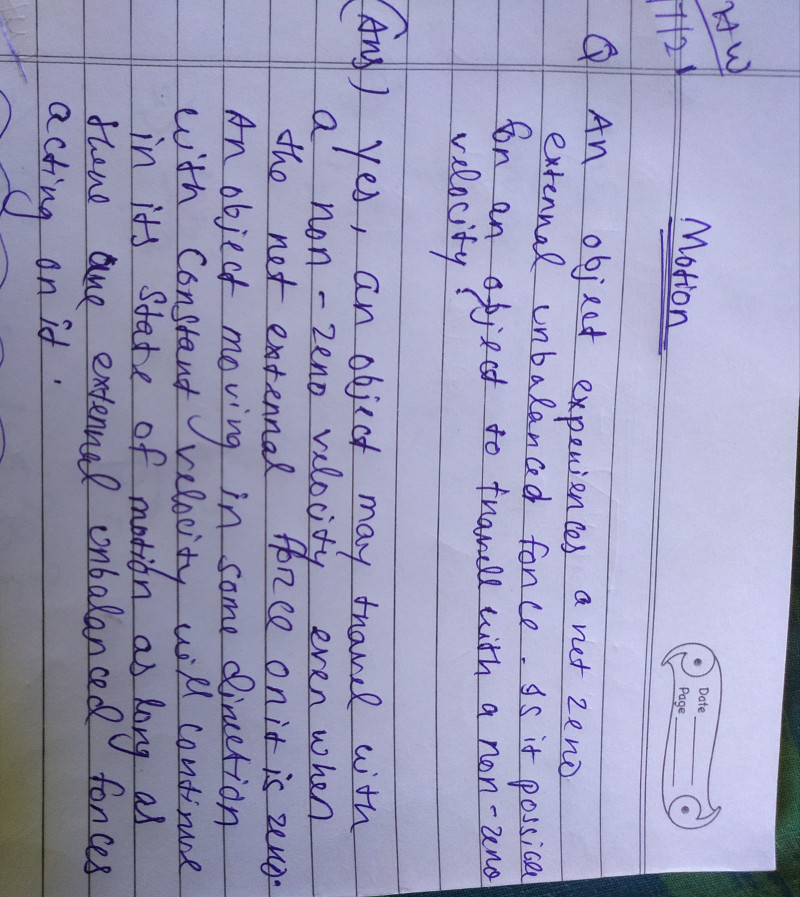 HW
17/21
Motion
Date
Page
Q An object experiences a net zero
external unbalanced force. Is it possible
for an object to travell with a non-zero
velocity?
(Ans) Yes, an object may travel with
a non-zero velocity even when
the net external force on it is zero.
An object moving in some direction
with constant velocity will continue
in its state of motion as long as
there are external unbalanced forces
acting on it.